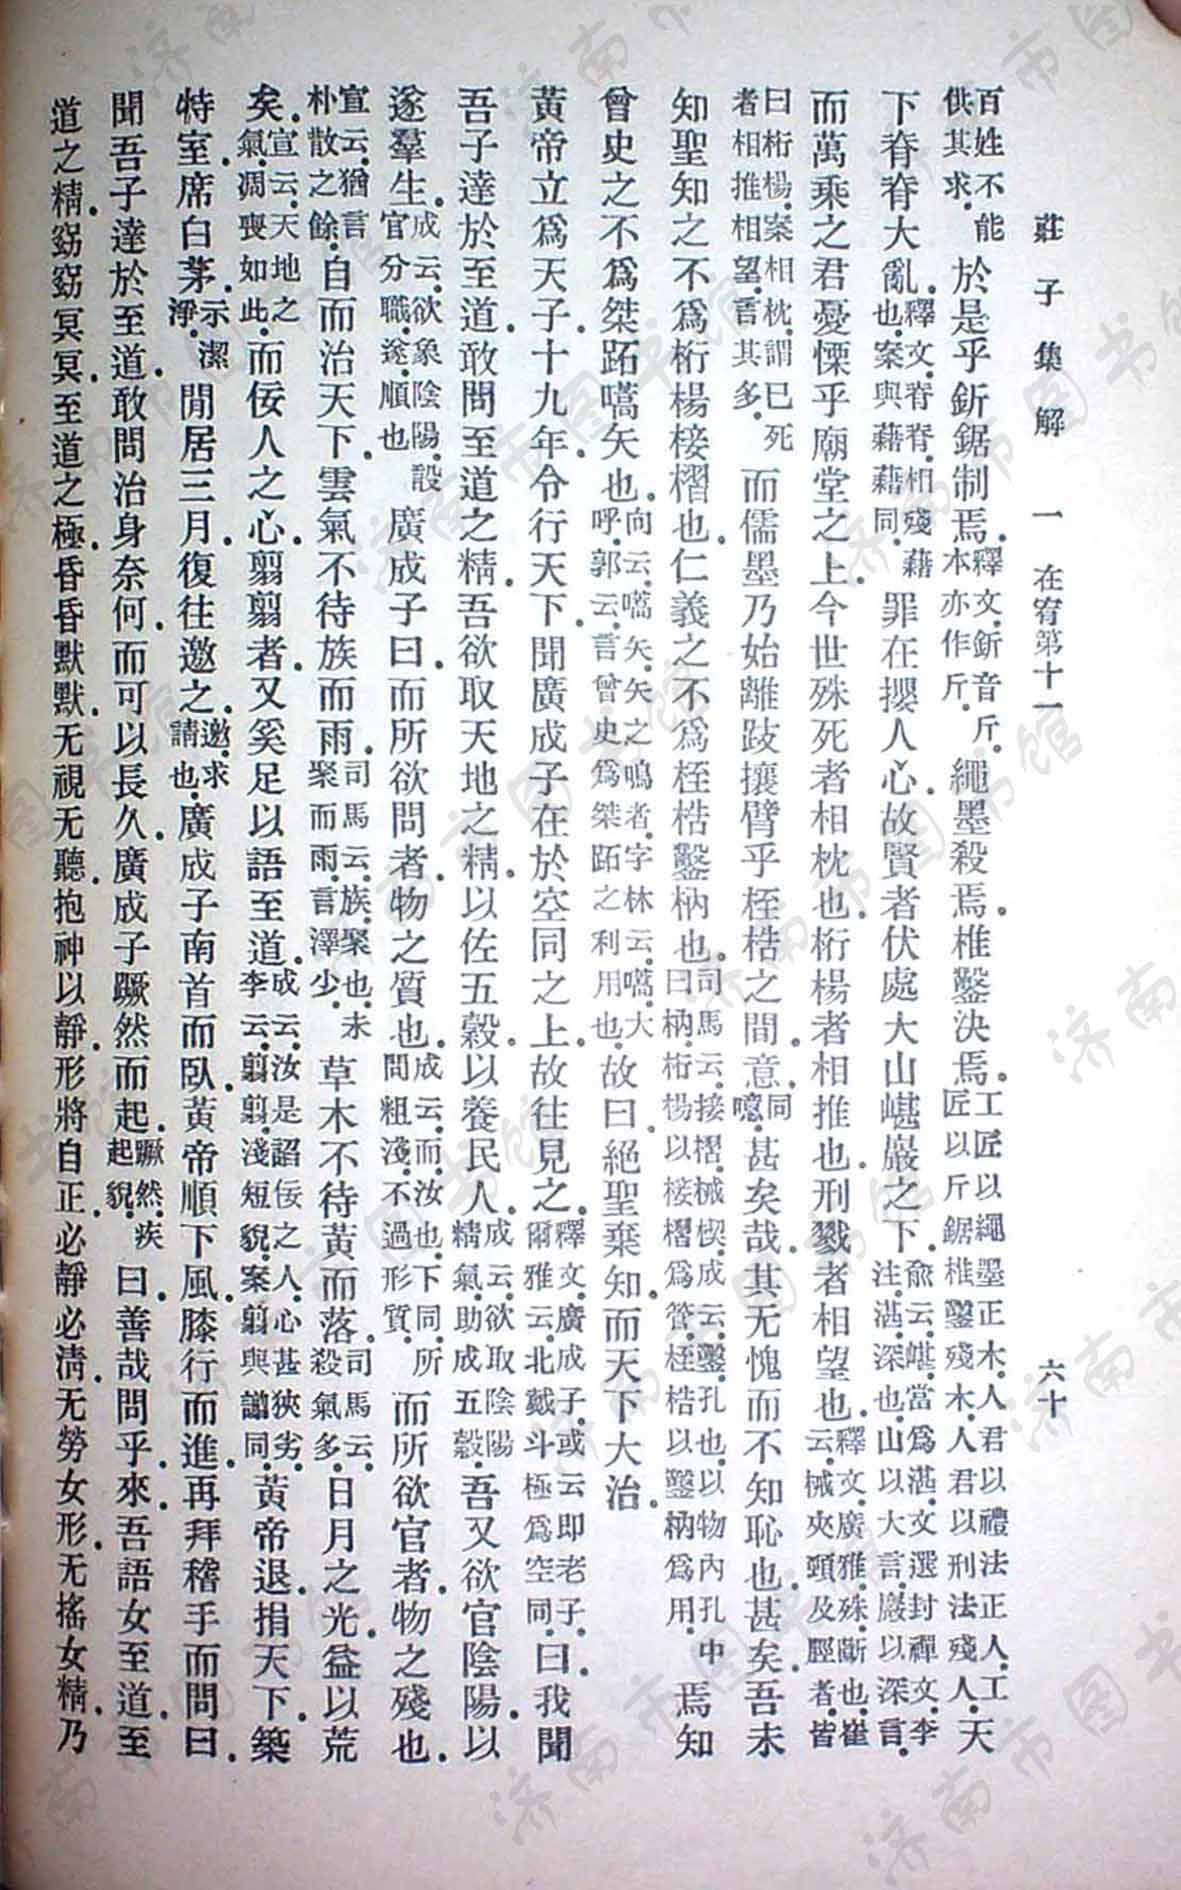 莊子集解　一　在宥第十一　六十
百姓不能供其求。於是乎釿鋸制焉。釋文。釿音斤。本亦作斤。繩墨殺焉。椎鑿決焉。工匠以繩墨正木。人君以禮法正人。工匠以斤鋸椎鑿殘木。人君以刑法殘人。天
下脊脊大亂。釋文。脊脊。相殘藉也。案與藉藉同。罪在攖人心。故賢者伏處大山嵁巖之下。兪云。嵁當爲湛。文選封禪文李注。湛。深也。山以大言。巖以深言。
而萬乘之君憂慄乎廟堂之上。今世殊死者相枕也。桁楊者相推也。刑戮者相望也。釋文。廣雅。殊。斷也。崔云。械夾頸及脛者。皆
曰桁楊。案相枕。謂已死者相推相望。言其多。而儒墨乃始離跂攘臂乎桎梏之間。意。同噫。甚矣哉。其无愧而不知恥也。甚矣。吾未
知聖知之不爲桁楊椄槢也。仁義之不爲桎梏鑿枘也。司馬云。接摺。械楔。成云。鑿。孔也。以物內孔中曰枘。桁楊以椄槢爲管。桎梏以鑿枘爲用。焉知
曾史之不爲桀跖嚆矢也。向云。嚆矢。矢之鳴者。字林云。嚆。大呼。郭云。言曾史爲桀跖之利用也。故曰。絕聖棄知而天下大治。
黃帝立爲天子。十九年。令行天下。聞廣成子在於空同之上。故往見之。釋文。廣成子。或云即老子。爾雅云。北戴斗極爲空同。曰。我聞
吾子達於至道。敢問至道之精。吾欲取天地之精。以佐五穀。以養民人。成云。欲取陰陽精氣。助成五穀。吾又欲官陰陽。以
遂羣生。成云。欲象陰陽。設官分職。遂順也。廣成子曰。而所欲問者。物之質也。成云。而。汝也。下同。所問粗淺。不過形質。而所欲官者。物之殘也。
宣云。猶言朴散之餘。自而治天下。雲氣不待族而雨。司馬云。族。聚也。未聚而雨。言澤少。草木不待黃而落。司馬云。殺氣多。日月之光。益以荒
矣。宣云。天地之氣凋喪如此。而佞人之心。翦翦者。又奚足以語至道。成云。汝是諂佞之人。心甚狹劣。李云。翦翦。淺短貌。案翦與諓同。黃帝退。捐天下。築
特室。席白茅。示潔淨。閒居三月。復往邀之。邀。求請也。廣成子南首而臥。黃帝順下風。膝行而進。再拜稽手而問曰。
聞吾子達於至道。敢問治身奈何。而可以長久。廣成子蹶然而起。蹶然。疾起貌。曰。善哉問乎。來。吾語女至道。至
道之精。窈窈冥冥。至道之極。昏昏默默。无視无聽。抱神以靜。形將自正。必靜必淸。无勞女形。无搖女精。乃
济南市图书馆